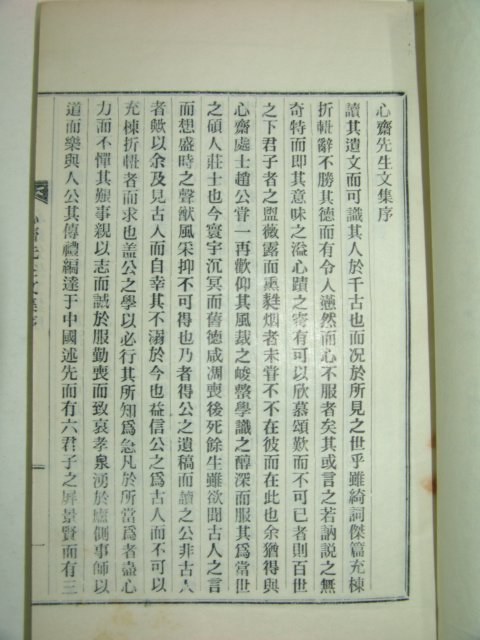 心齋先生文集序
讀其遺文而可識其人於千古也而况於所見之世乎雖綺詞傑篇充棟
折輞辭不勝其德而有令人憖然而心不服者矣其或言之若訥説之無
奇特而即其意味之溢心蹟之寄有可以欣慕頌歎而不可已者則百世
之下君子者之盥薇露而熏麰烟者未甞不不在彼而在此也余猶得與
心齋處士趙公甞一再歡仰其風裁之峻整學識之醇深而服其爲當世
之碩人莊士也今寰宇沉冥而舊德咸凋喪後死餘生雖欲聞古人之言
而想盛時之聲猷風采抑不可得也乃者得公之遺稿而讀之公非古人
者歟以余及見古人而自幸其不溺於今也益信公之爲古人而不可以
充棟折輞者而求也盖公之學以必行其所知爲急凡於所當爲者盡心
力而不憚其艱事親以志而誠於服勤喪而致哀孝泉湧於廬側事師以
道而樂與人公其傳禮編達于中國述先而有六君子之屛景賢而有三